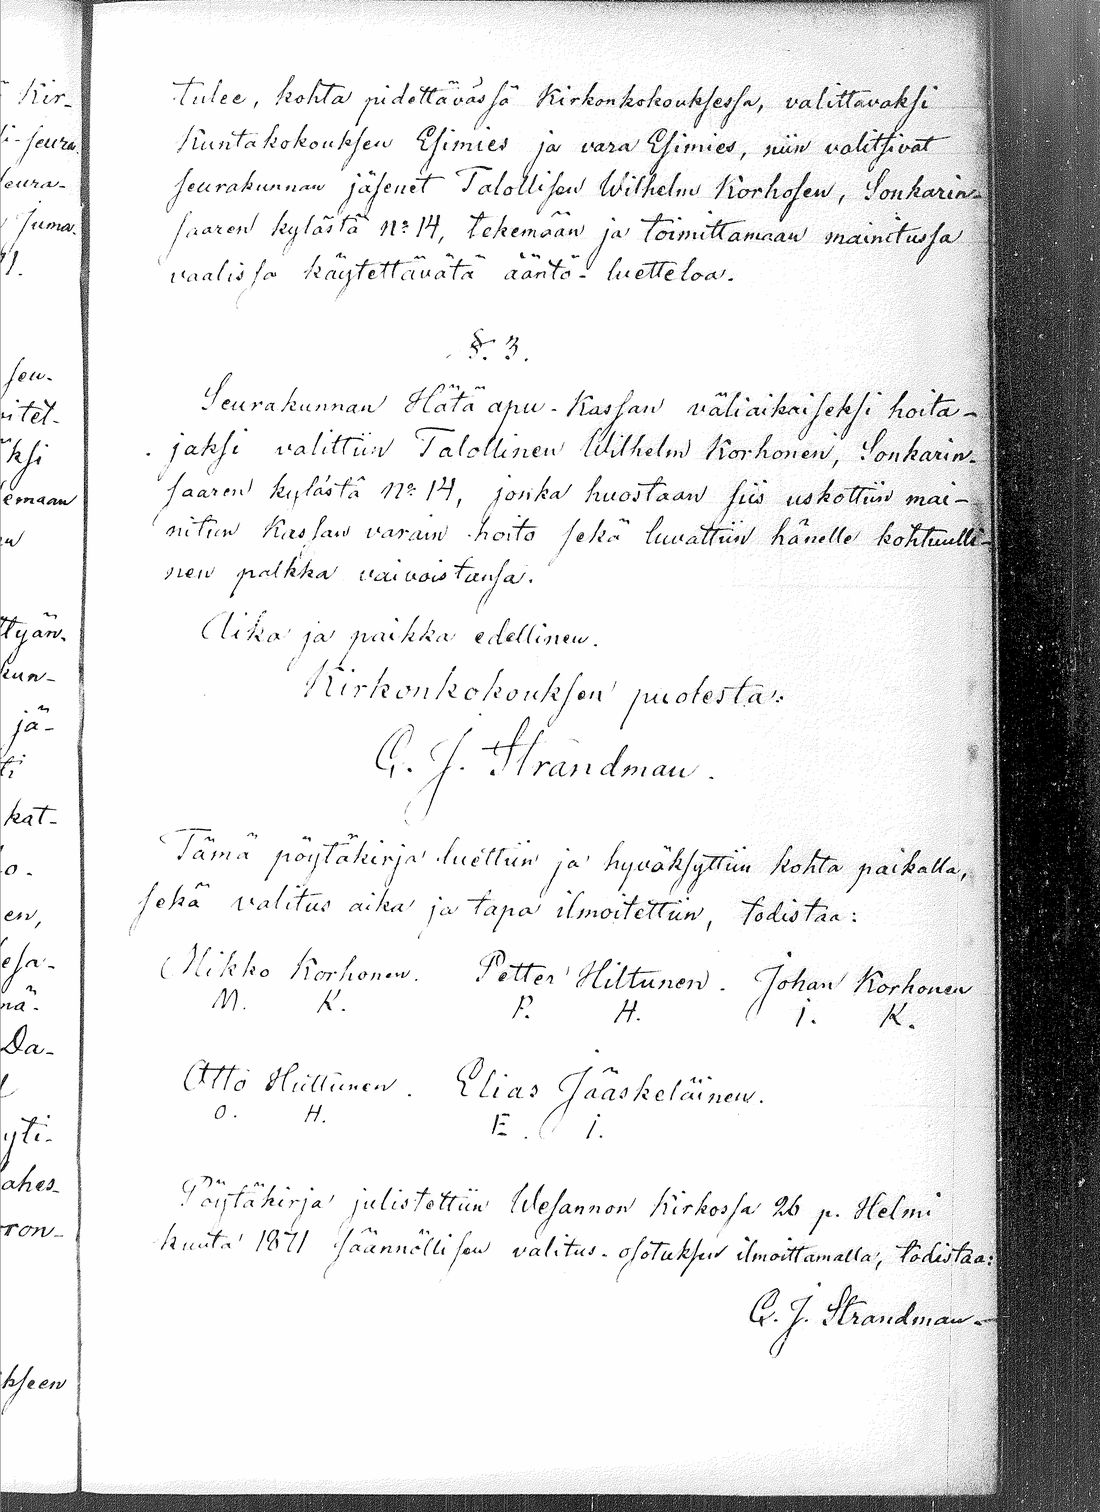 tulee, kohta pidettävässä Kirkonkokouksessa, valittavaksi
Kuntakokouksen Esimies ja vara Esimies, niin valitsivat
seurakunnan jäsenet Talollisen Wilhelm Korhosen, Sonkarin-
saaren kylästä No 14, tekemään ja toimittamaan mainitussa
vaalissa käytettävätä ääntö-luetteloa.
§. 3.
Seurakunnan Hätäapu-Kassan väliaikaiseksi hoita-
jaksi valittiin Talollinen Wilhelm Korhonen, Sonkarin-
saaren kylästä No 14, jonka huostaan siis uskottiin mai-
nitun Kassan varain hoito sekä luvattiin hänelle kohtuulli-
nen palkka vaivoistansa.
Aika ja paikka edellinen.
Kirkonkokouksen puolesta:
G. J. Strandman.
Tämä pöytäkirja luettiin ja hyväksyttiin kohta paikalla,
sekä valitus aika ja tapa ilmoitettiin, todistaa:
Mikko Korhonen. Petter Hiltunen. Johan Korhonen
M. K. P. H. I. K.
Otto Hiltunen. Elias Jääskeläinen.
O. H. E. I.
Pöytäkirja julistettiin Wesannon Kirkossa 26 p. Helmi
kuuta 1871 säännöllisen valitus-osotuksen ilmoittamalla, todistaa:
G. J. Strandman